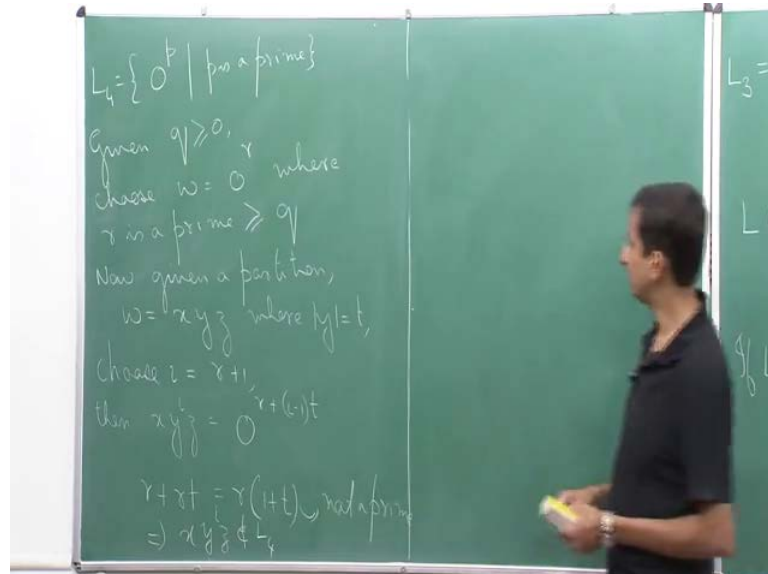 L₄ = { 0ᵖ | p is a prime }
Given q ⩾ 0,
choose w = 0ʳ where
r is a prime ⩾ q
Now given a partition,
w = x y z where |y| = t,
choose i = r+1,
then x yⁱ z = 0^(r+(i-1)t)
r + rt = r(1+t), not a prime
⇒ x yⁱ z ∉ L₄
L₃ =
L
If L